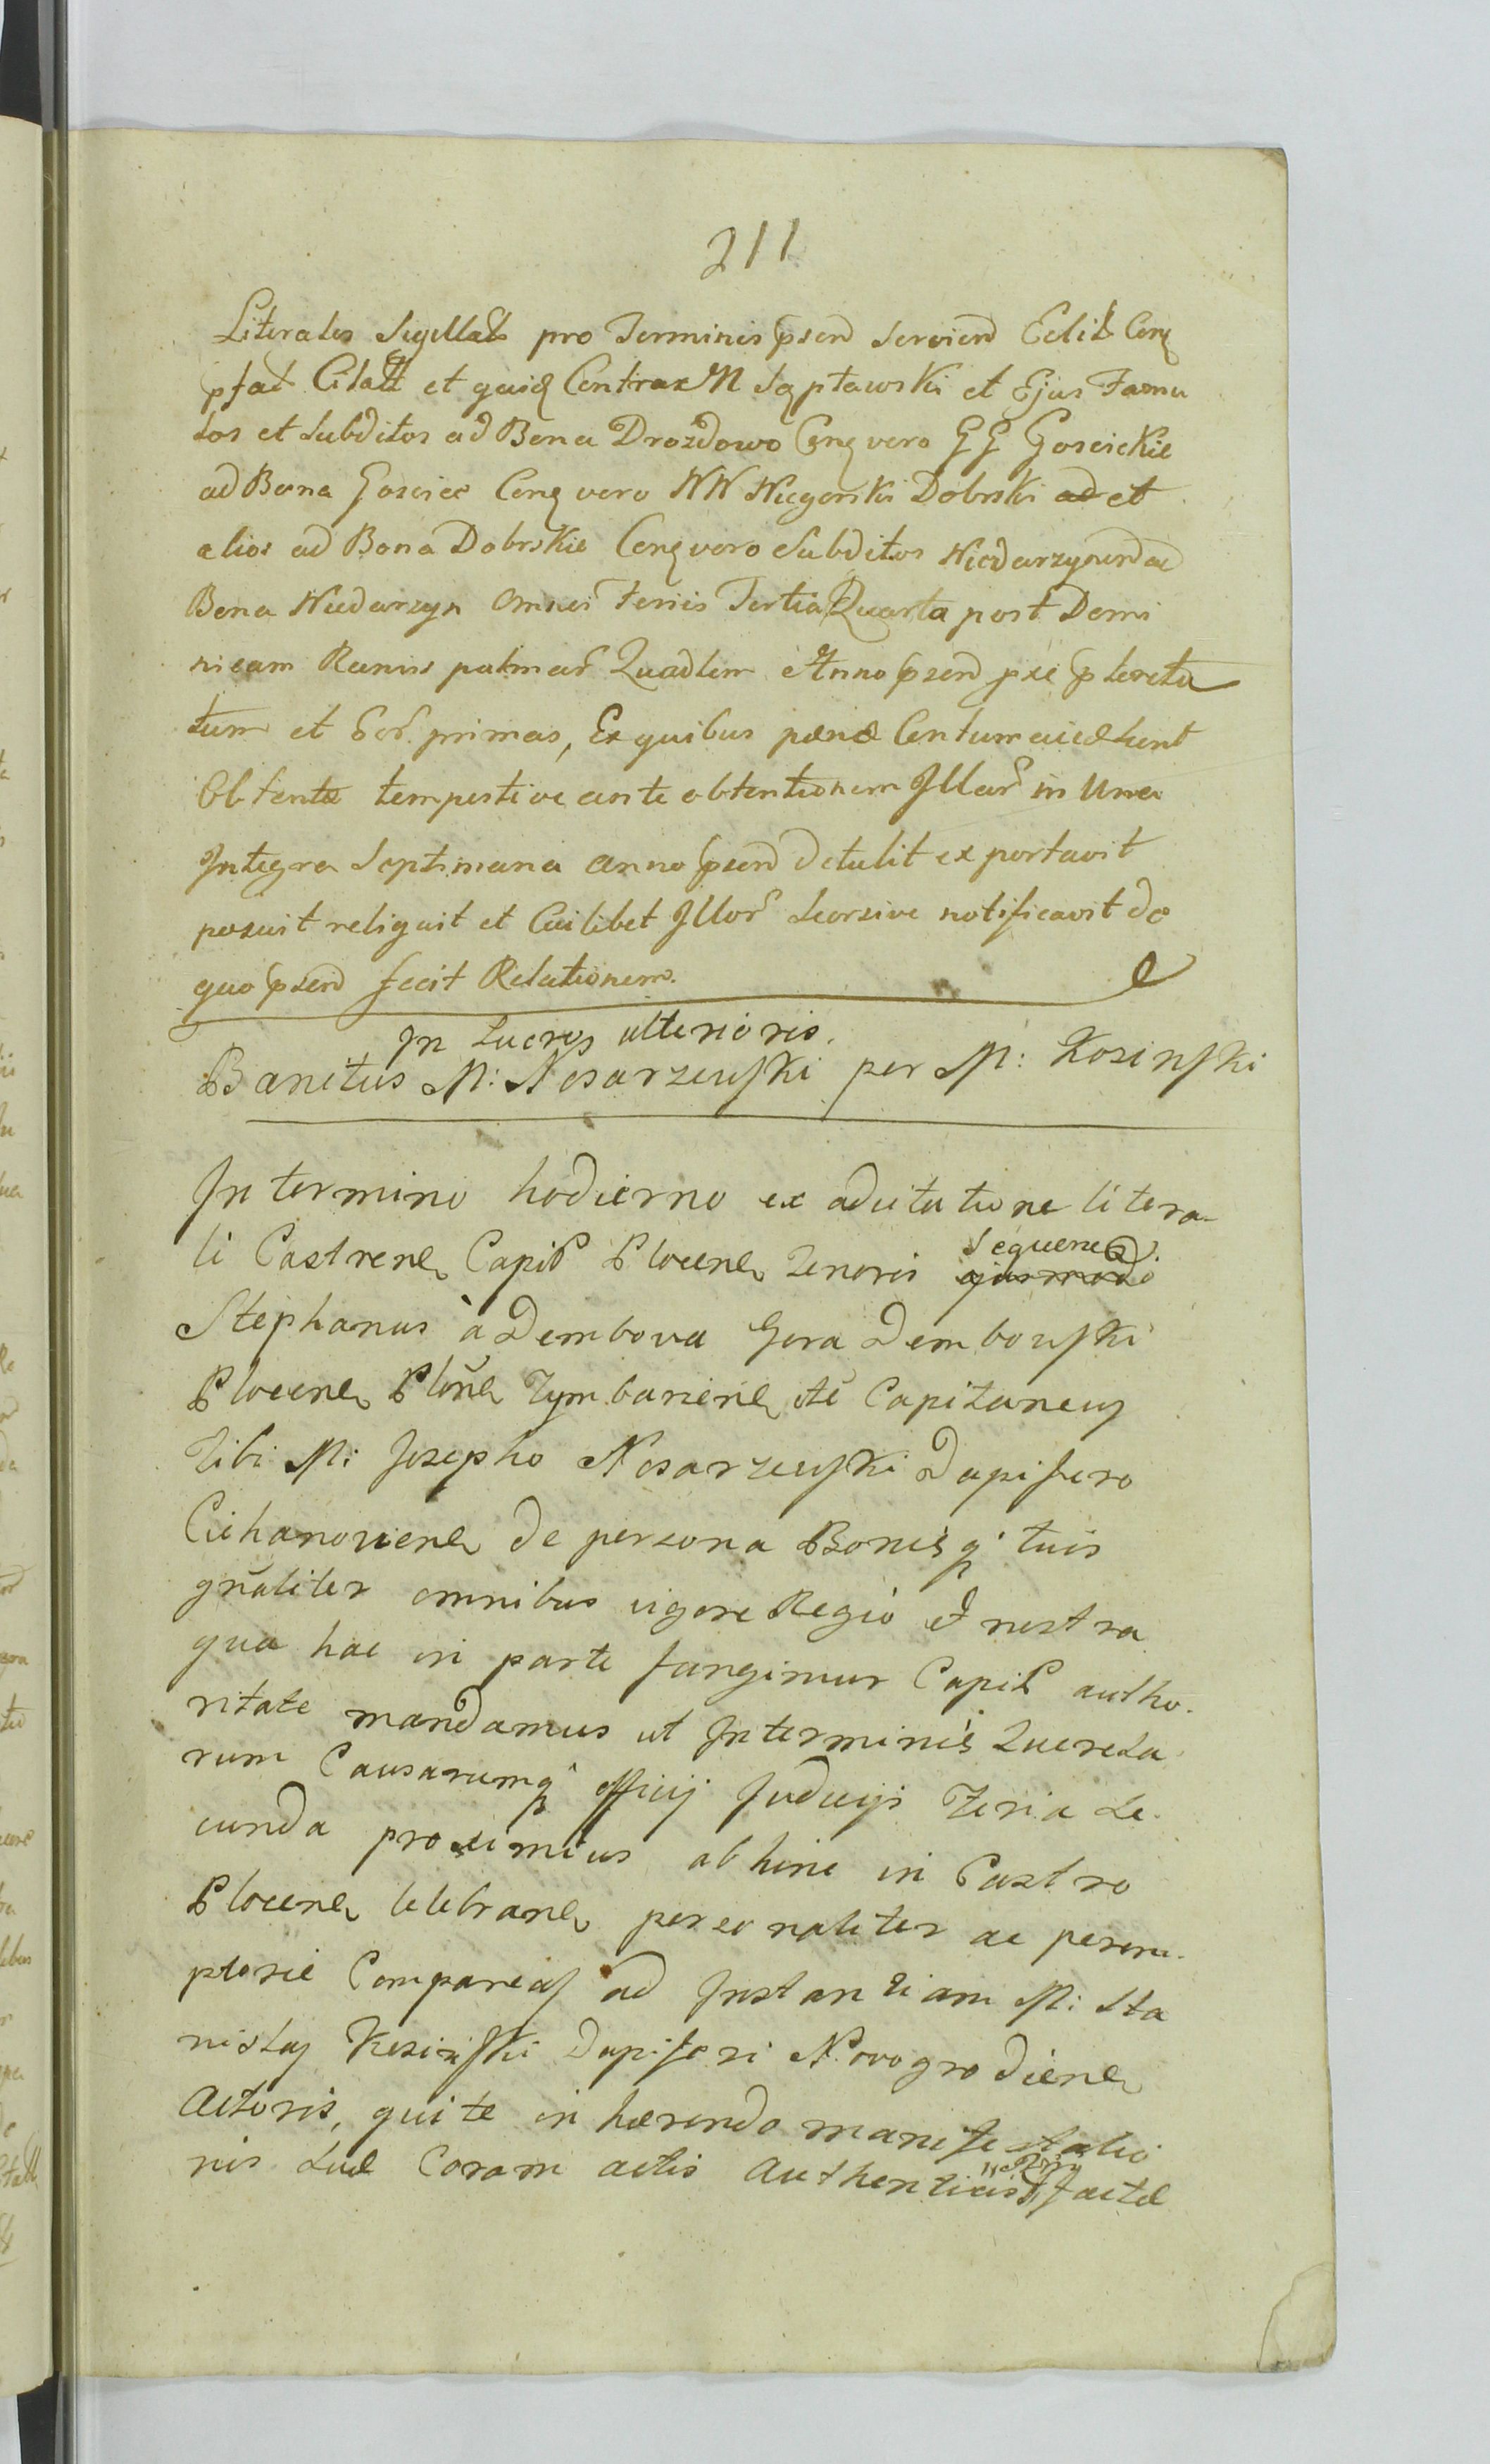 211
Literales Sigillatt pro Terminis pserd servierd Edit Conq
pfat Citatt et quidq Contra M Sąptawski et Ejus Famu
los et Subditos ad Bona Drozdowo Conq vero GG Goscickie
ad Bona Gosciec Conq vero NN Niegorski Dobrski ad et
alios ad Bona Dobrskie Conq vero Subditos Niedarzynend ad
Bona Niedarzyn omnes Feriis Tertia Quarta post Domi
nicam Ramis palmar Quadlem Anno pserd
tum et primas, Ex quibus pænæ Centum
Obtentæ tempestive ante obtentionem Illar in Una
Integra Septimana anno pserd detulit exportavit
posuit reliquit et Cuilibet Illor seorsive notificavit de
quo pserd fecit Relationem.
In Lucros ulterioris.
Banitus M: Nosarzewski per M: Kosinski
In termino hodierno ex adcitatione litera-
li Castrene Capit Plocene Tenoris ejusmodi sequene
Stephanus à Dembova Gora Dembowski
Plocene Plone Tymbariene etc Capitaneus
Tibi M: Josepho Nosarzewski Dapifero
Ciehanoviene de persona Bonisq tuis
gnaliter omnibus vigore Regio et nostra
qua hac in parte fungimur Capit autho-
ritate mandamus ut In terminis Querela
rum Causarumq officij Judicijs Feria Se-
cunda proximius abhinc in Castro
Plocene Celebrane personaliter ac perem-
ptorie Compareas ad Instantiam M: Sta
nislaj Kosinski Dapiferi Novogrodiene
Actoris, qui te in hærendo manifestatio
nis suæ Coram actis Authenticis factæ